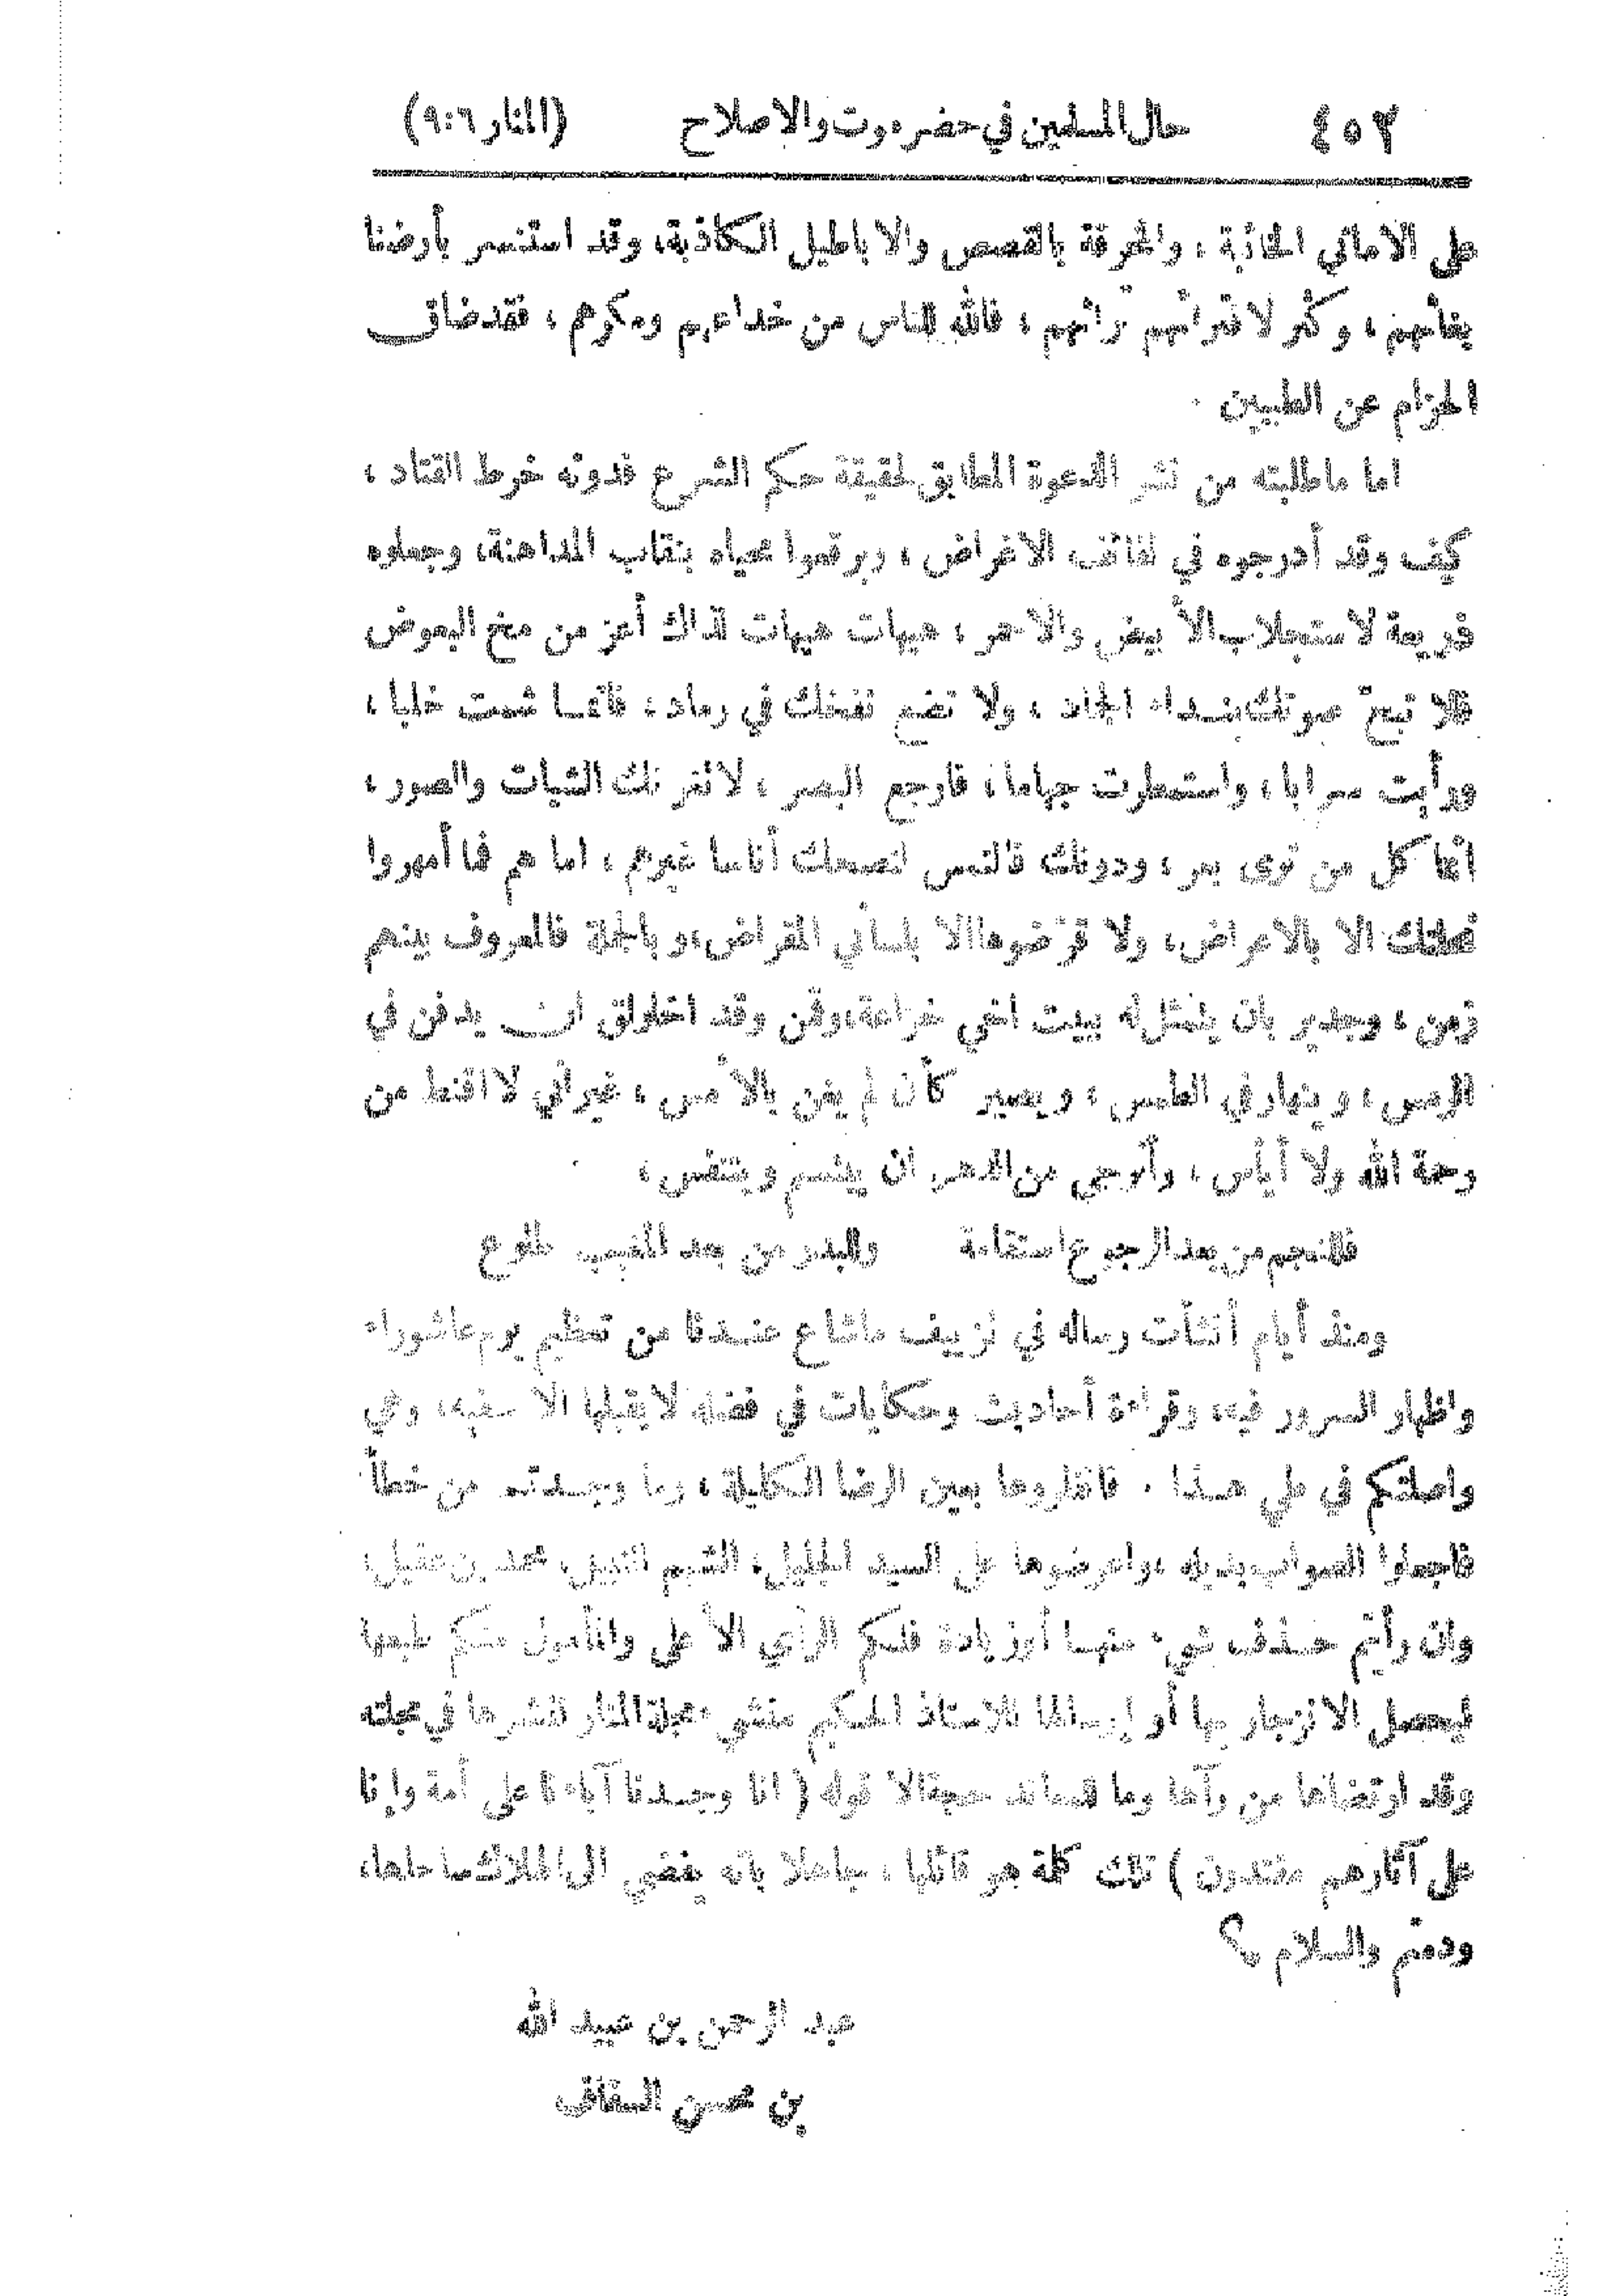 ٤٥٢ حال المسلمين في حضرموت والاصلاح (المنار ٦:٩)
على الاماني الخائبة ، والمخرقة بالقصص والاباطيل الكاذبة، وقد استنسر بأرضنا
بغاثهم ، وكثر لا قرائهم ترائهم ، فالله للناس من خداعهم ومكرهم ، فقد ضاق
الحزام عن الطبيين .
اما ماطلبته من نشر الدعوة المطابق لحقيقة حكم الشرع فدونه خرط القتاد ،
كيف وقد أدرجوه في لفائف الاغراض ، وبرقعوا محياه بنقاب المداهنة، وجعلوه
ذريعة لاستجلاب الأبيض والاحمر ، هيهات هيهات لذاك أعز من مخ البعوض
فلا تبحّ صوتك بنداء الجماد ، ولا تضع نفخك في رماد ، فانما شمت خلبا ،
ورأيت سرابا ، واستمطرت جهاما ، فارجع البصر ، لا تغرنك الشيات والصور ،
انما كل من ترى بقر ، ودونك فالتمس لنصحك أناسا غيرهم ، اما هم فما أمهروا
نصائحك الا بالاعراض ، ولا قرّضوها الا بلساني المقراض، وبالجملة فالمعروف بينهم
زمن ، وجدير بان يتمثل له ببيت اخي خزاعة، وقمن وقد اخلولق ان يدفن في
الرمس ، وينهار في الطمس ، ويصير كأن لم يغن بالأمس ، غير أني لا اقنط من
رحمة الله ولا أيأس ، وأترجى من الدهر ان يبتسم ويتنفس ،
فللنجم من بعد الرجوع استقامة وللبدر من بعد المغيب طلوع
ومنذ أيام أنشأت رسالة في تزييف ماشاع عندنا من تعظيم يوم عاشوراء
واظهار السرور فيه، وقراءة أحاديث وحكايات في فضله لايقبلها الا سفيه، وهي
واصلتكم في طي هذا . فانظروها بعين الرضا الكليلة ، وما وجدتم من خطأ
فاجعلوا الصواب بديله ، واعرضوها على السيد الجليل، الشهم النبيل، محمد بن عقيل،
وان رأيتم حذف شيء منها أو زيادة فلكم الرأي الأعلى والمأمول منكم طبعها
ليحصل الانزجار بها أو إرسالها للاستاذ الحكيم منشيء مجلة المنار لنشرها في مجلته
وقد ارتضاها من رآها وما لمعاند حجة الا قوله (انا وجدنا آباءنا على أمة وإنا
على آثارهم مقتدون) تلك كلمة هو قائلها ، جاهلا بانه يفضي الى الهلاك ساحلها،
ودمتم والسلام ؟
عبد الرحمن بن عبيد الله
بن محسن السقاف